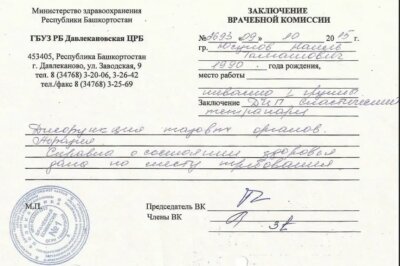 Министерство здравоохранения
Республики Башкортостан
ГБУЗ РБ Давлекановская ЦРБ
453405, Республики Башкортостан
г. Давлеканово, ул. Заводская, 9
тел. 8 (34768) 3-20-06, 3-26-42
тел./факс 8 (34768) 3-25-69
ЗАКЛЮЧЕНИЕ
ВРАЧЕБНОЙ КОМИССИИ
№ 1693 «09» 10 2015 г.
гр. Юсупов Наиль
1990. года рождения,
место работы
инвалид I группы
Заключение ДЦП спастический
тетрапарез
Дисфункция тазовых органов.
Справка о состоянии здоровья
дана по месту требования
М.П.
Председатель ВК
Члены ВК